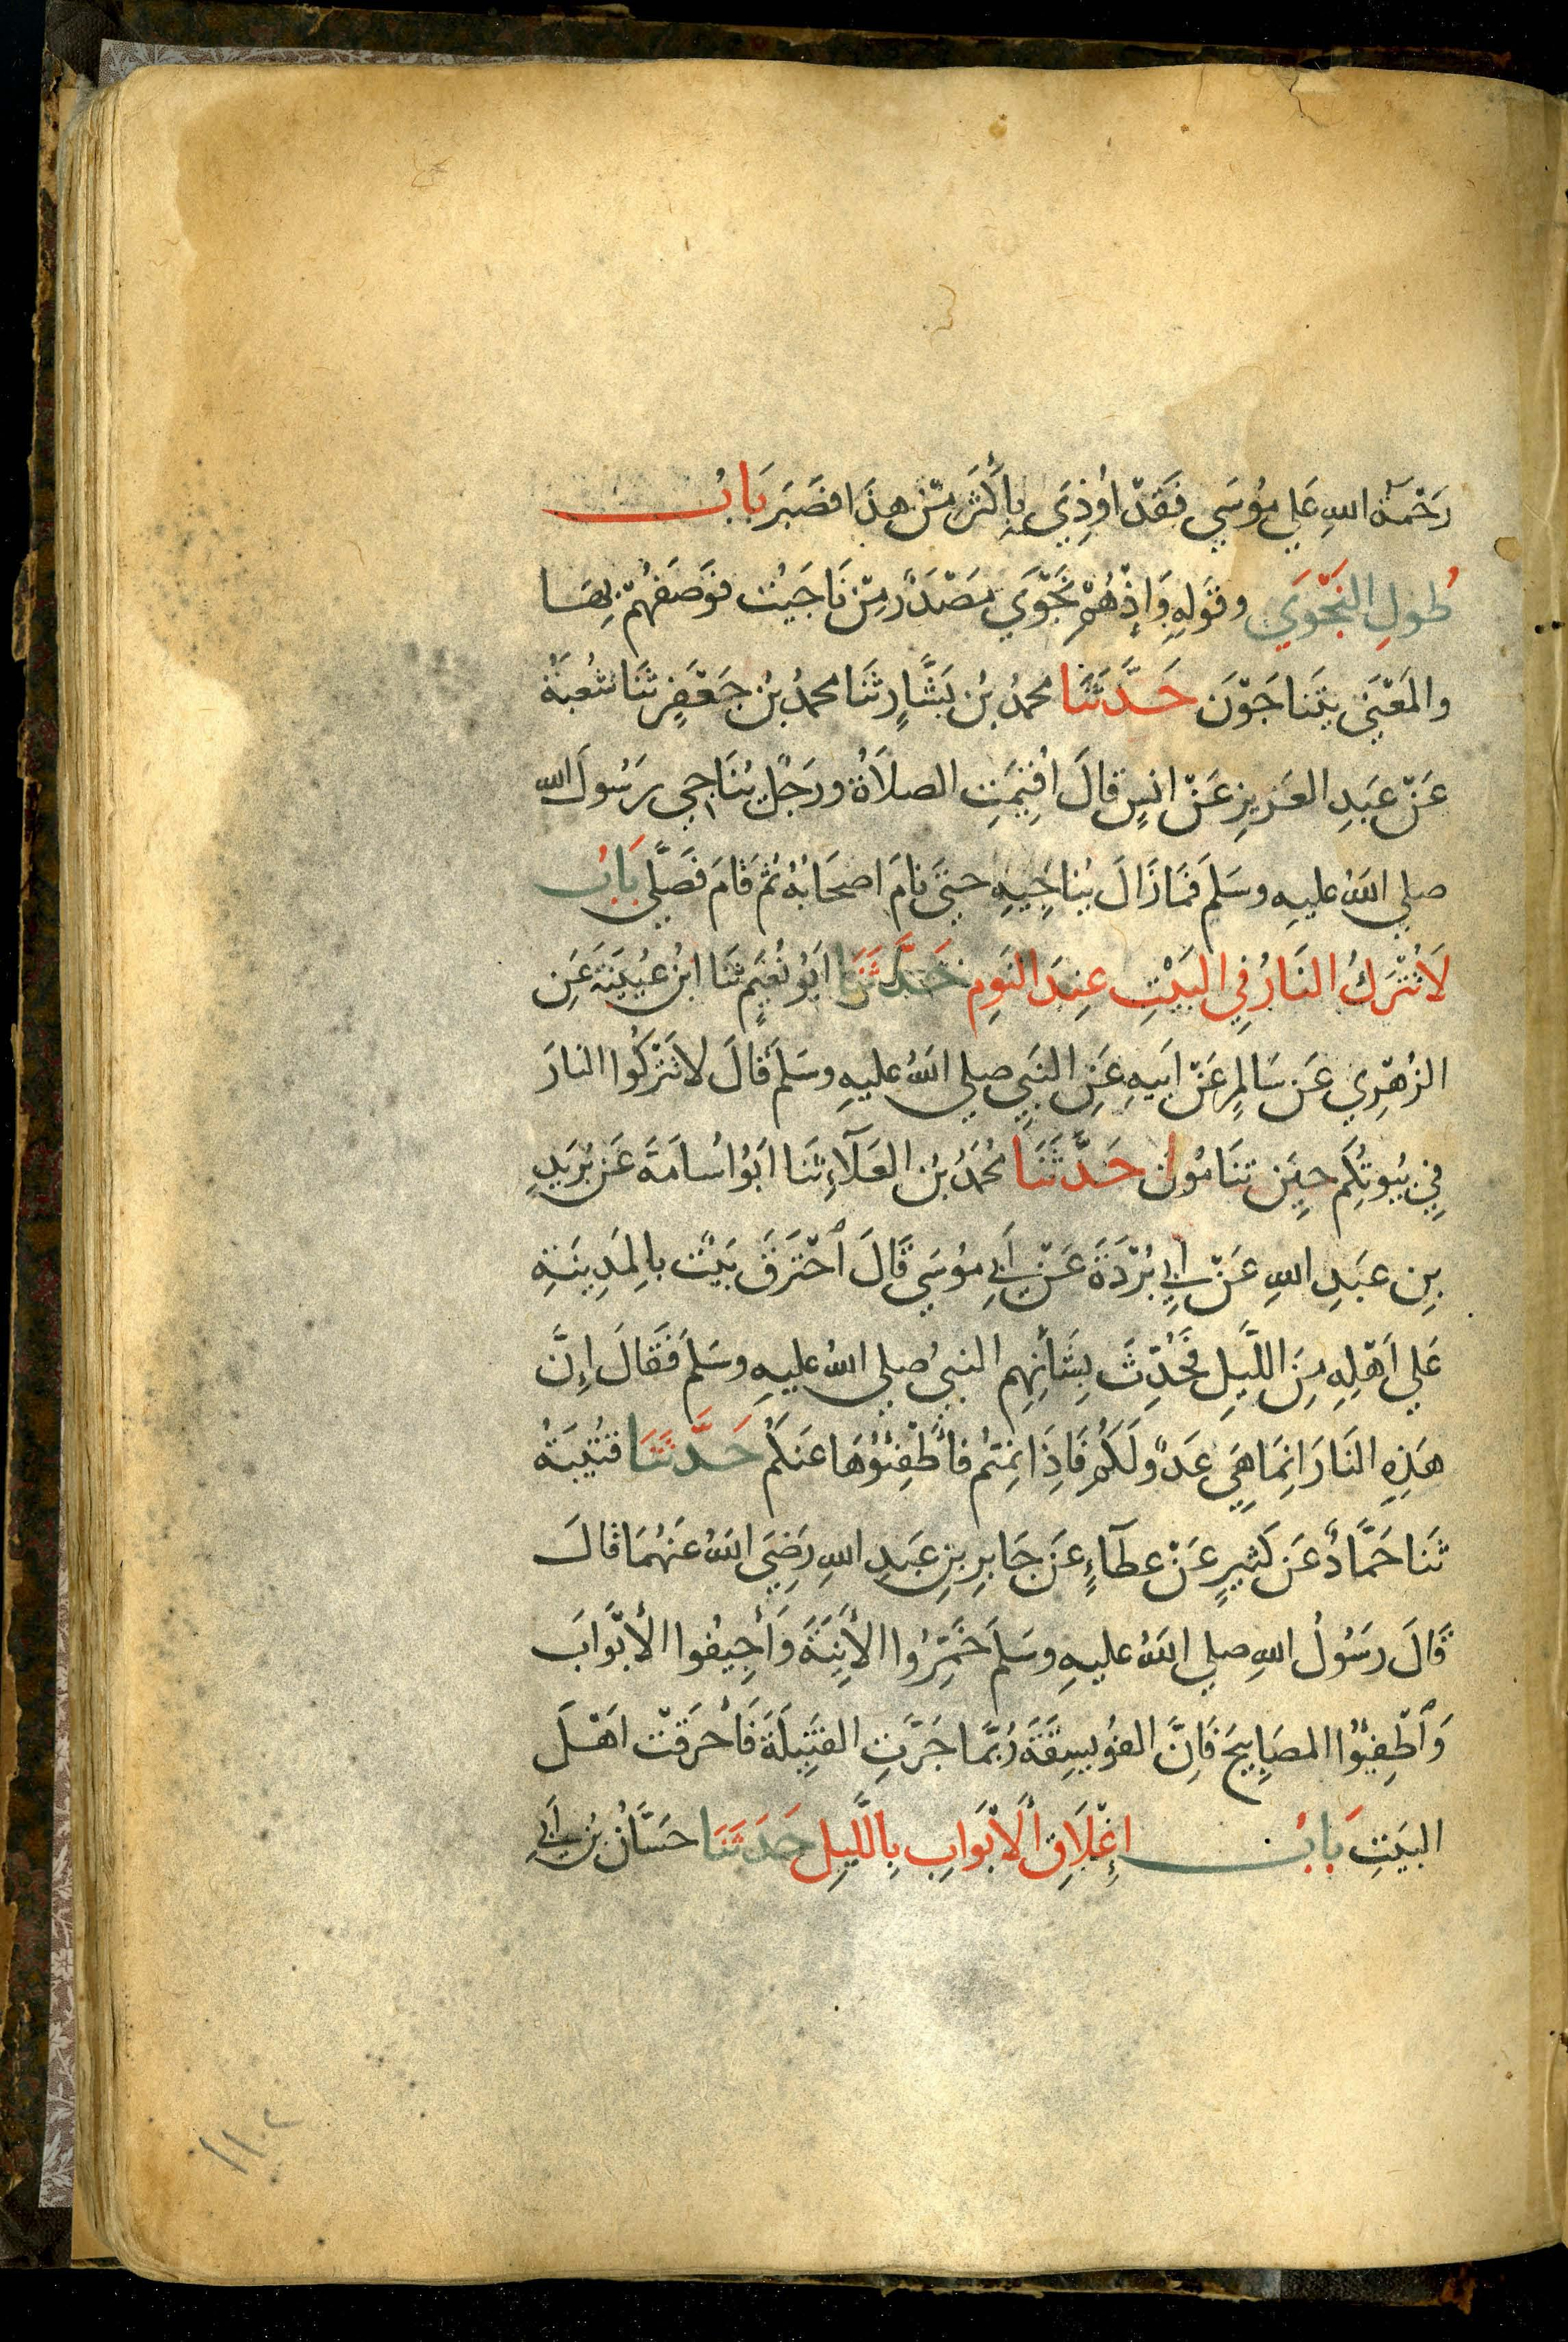 رَحْمَةُ اللهِ عَلي مُوُسَي فَقَدْ اُوذِيَ بِأَكْثَرَ مِنْ هذَا فصَبَر بَابُ
طُولِ النَجْوَي وقَولِهِ وَإِذْ هُمْ نَجْوَي مَصْدَر مِنْ نَاجَيْت فوَصَفَهُمْ بِهَا
والمَعْنَي يتَناجَوْنَ حَدَّثَنَا محمدُ بنُ بَشَّارٍ ثَنَا محمدُ بنُ جَعْفَرٍ ثنَا شُعبَةُ
عَنْ عبَدِ العَزيزِ عَنْ انسٍ قالَ اُقِيمَتِ الصلَاَةُ ورَجُلٌ يُنَاجِي رَسُولَ الله
صلي اللهُ عليهِ وسَلَم فمَا زَالَ يُناجِيهِ حتيَ نامَ اصحَابُهُ ثُمَ قَامَ فصَلَّي بَابُ
لَا تُتْرَكُ النَارُ فِي البَيْتِ عِندَ النَومِ حَدَّثَنَا ابَوُ نُعَيمٍ ثَنَا ابنُ عُيَينَةَ عَنِ
الزُهْرِي عَن سَالمٍ عَنْ ابَيهِ عَنِ النَبِي صلي اللهُ عليهِ وسَلمَ قالَ لَا تَتْركُوا النارَ
فِي بُيُوتِكُم حِينَ تنَامُونَ حَدَّثَنَا مُحمَدُ بنُ العَلَآءِ ثنَا ابَوُ اُسامَةَ عَن بُرَيدِ
بنِ عبَدِ اللهِ عَنْ أَبِي بُرْدَةَ عَنْ أَبِي مُوُسَي قَالَ اَحْتَرقَ بَيْتٌ بالِمَدِينَةِ
عَلي اَهْلِهِ مِنَ اللَّيلِ فحُدِّثَ بِشَأنِهِم النبيُ صلي اللهُ عليهِ وسَلمَ فقَالَ اِنَّ
هَذِهِ النَارَ اِنمَا هِيَ عَدُوٌّ لَكُم فَاِذَا نِمتُم فأَطْفِئُوُهَا عَنكُم حَدَّثَنَا قتُيبَةُ
ثنَا حَمَّادٌ عَن كَثيرٍ عَنْ عطَآءٍ عَن جَابِرِ بنِ عَبدِ اللهِ رَضِيَ اللهُ عَنهُمَا قالَ
قَالَ رسَوُلُ اللهِ صلي اللهُ عليهِ وسَلمَ خَمِّرُوا الأَنِيَةَ وَأَجِيفُوا الأَبْوَابَ
وَاَطْفِيُوا المصَابِيحَ فَاِنَّ الفُوَيسِقَةَ رُبمَّا جَرَّتِ الفَتِيلَةَ فَأَحرَقتْ اهْلَ
البَيتِ بَابُ إِغْلَاقِ الأَبْوَابِ بِاللَّيلِ حَدَثنَا حَسَّانُ بنُ أَبي
١١٠٢